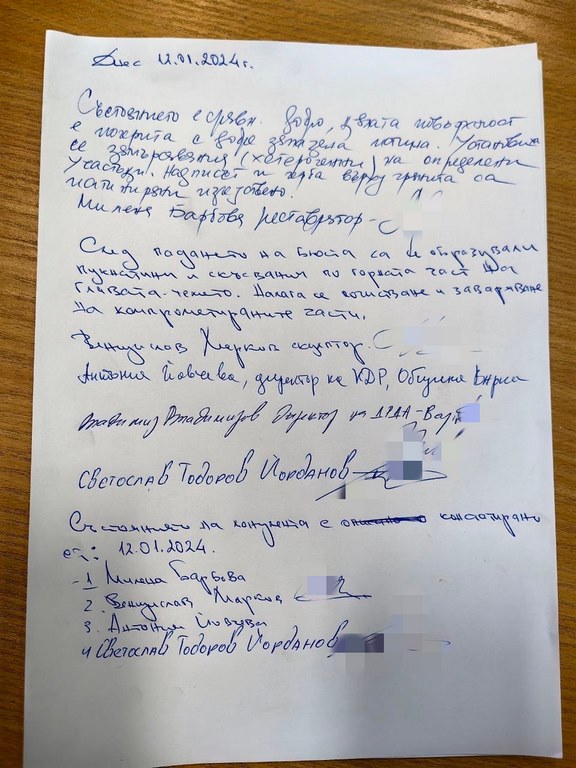 Днес 12.01.2024г.
Състоянието е сравн. добро, цялата повърхност
е покрита с добре запазена патина. Установи
се замърсявания (хетерогенни) на определени
участъци. Надписът и герба върху гранита са
патинирани изкуствено.
Милена Барбова реставратор-
След падането на бюста са се образували
пукнатини и скъсвания по горната част на
главата-челото. Налага се почистване и заваряване
на компрометираните части.
Венцислав Марков скулптор.
Антония Йовчева, директор на КДР, Община Варна
Владимир Владимиров директор на ДАА-Варна
Светослав Тодоров Йорданов
Състоянието на монумента е констатирано
от: 12.01.2024.
1 Милена Барбова
2. Венцислав Марков
3. Антония Йовчева
4 Светослав Тодоров Йорданов